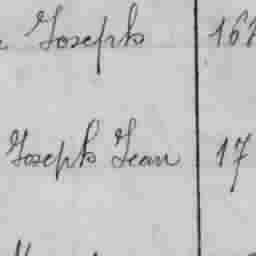 Joseph 167
Joseph Jean 17